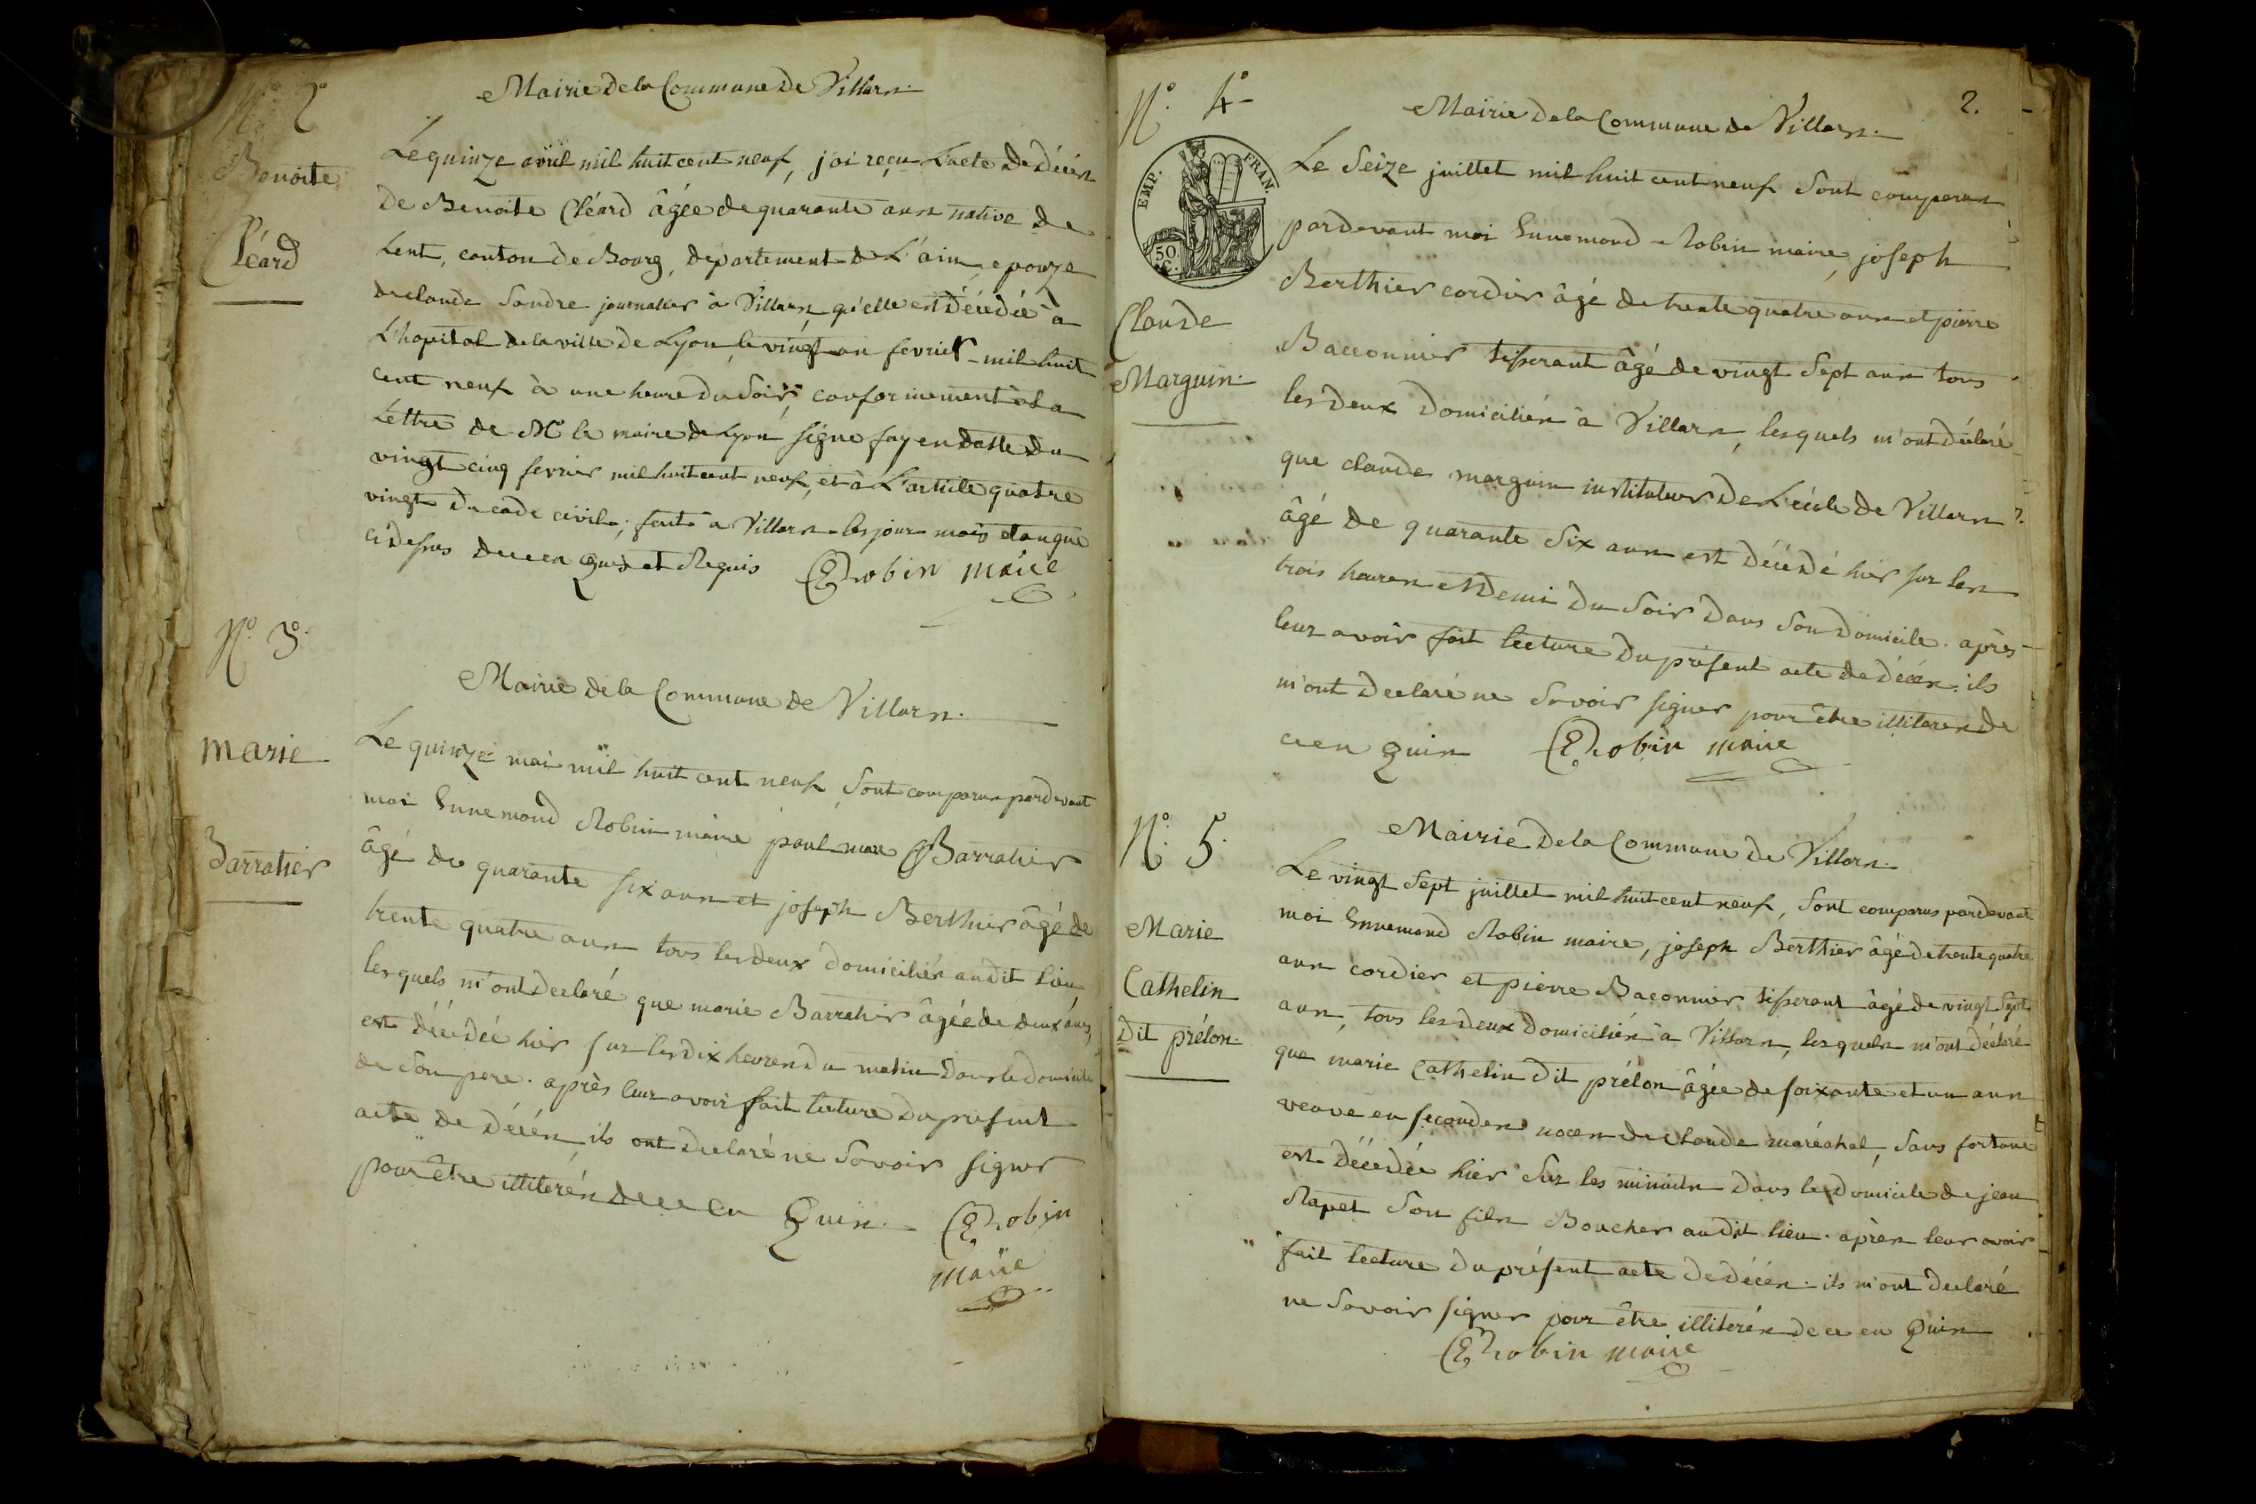 N.º 2º
Benoite
Cléard
Mairie de la Commune de Villars.
Le quinze avril mil huit cent neuf, j'ai reçu L'acte de décès
de Benoite Cléard âgée de quarante ans native de
Lent, canton de Bourg, département de L'ain, epouze
de claude Sandre journalier à Villars qu'elle est décédée à
L'hopital de la ville de Lyon, le vingt un fevrier mil huit
cent neuf à une heure du soir, conformement à la
Lettre de Mr le maire de Lyon signe fay en datte du
vingt cinq fevrier mil huit cent neuf, et à L'article quatre
vingt du code civil; fait à Villars les jour mois et an que
ci dessus de ce en Quis et Requis E Robin maire
N.º 3º.
marie
Barratier
Mairie de la Commune de Villars.
Le quinze mai mil huit cent neuf, sont comparus pardevant
moi Ennemond Robin maire paul Barratier
âgé de quarante six ans et joseph Berthier âgé de
trente quatre ans tous les deux domiciliés audit lieu
lesquels m'ont declaré que marie Barratier âgée de deux ans,
est décédée hier sur les dix heures du matin dans le domicile
de son pere. après leur avoir fait lecture du present
acte de décès, ils ont declaré ne savoir signer
pour être illiterés de ce en Quis. E Robin
maire
2.
N.º 4º
EMP. FRAN.
50. C.
Claude
Marguin.
Mairie de la Commune de Villars.
Le Seize juillet mil huit cent neuf sont comparus
pardevant moi Ennemond Robin maire, joseph
Berthier cordier âgé de trente quatre ans et pierre
Bacconnier tisserant âgé de vingt sept ans tous
les deux domiciliés à Villars, lesquels m'ont déclaré
que claude marguin instituteur de L'école de Villars
âgé de quarante six ans est décédé hier sur les
trois heures et demi du soir dans son domicile. après
leur avoir fait lecture du présent acte de décès, ils
m'ont declaré ne savoir signer pour être illiterés de
ce en Quis E Robin maire
N.º 5º.
Marie
Cathelin
dit prélon.
Mairie de la Commune de Villars.
Le vingt sept juillet mil huit cent neuf, sont comparus pardevant
moi Ennemond Robin maire, joseph Berthier âgé de trente quatre
ans cordier et pierre Baconnier tisserant âgé de vingt sept
ans, tous les deux domiciliés à Villars, lesquels m'ont déclaré
que marie Cathelin dit prélon âgée de soixante et un ans
veuve en secondes noces de claude maréchal, sans fortune
est décédée hier sur les minuits dans le domicile de jean
Rapet son fils Boucher audit lieu. après leur avoir
fait lecture du présent acte de décès. ils m'ont declaré
ne savoir signer pour être illiterés de ce en Quis
E Robin maire